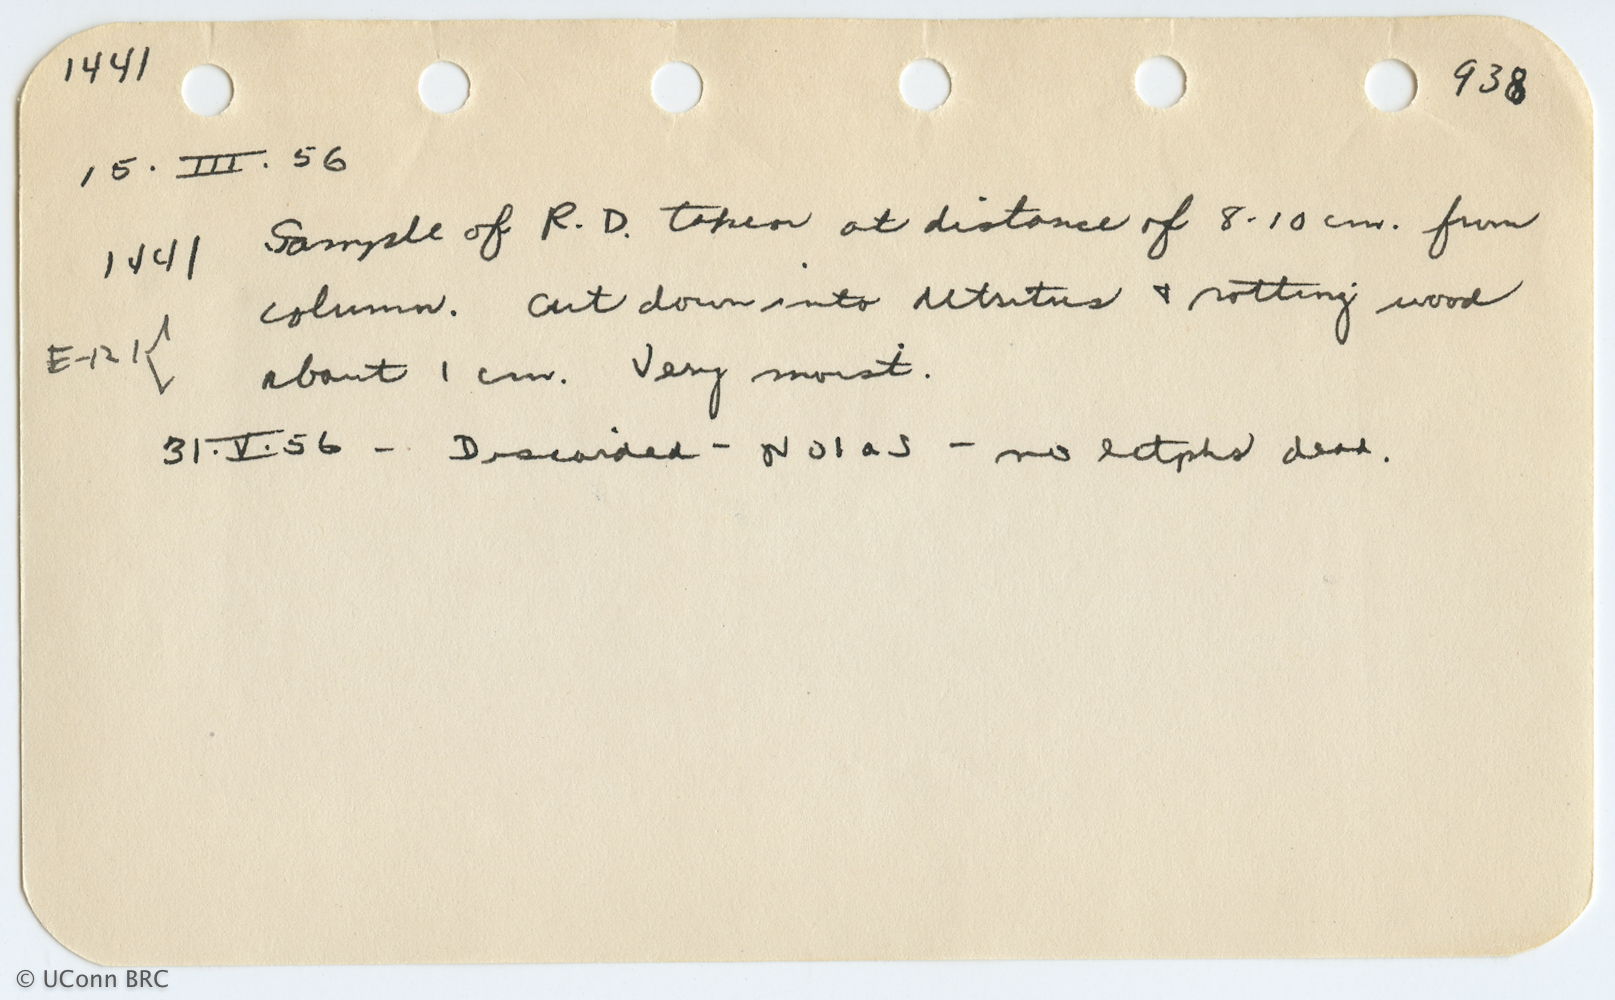 1441 938
15. III. 56
1441 Sample of R. D. taken at distance of 8-10 cm. from
column. Cut down into detritus & rotting wood
E-121 about 1 cm. Very moist.
31.V.56 - Discarded - - no dead.
© UConn BRC